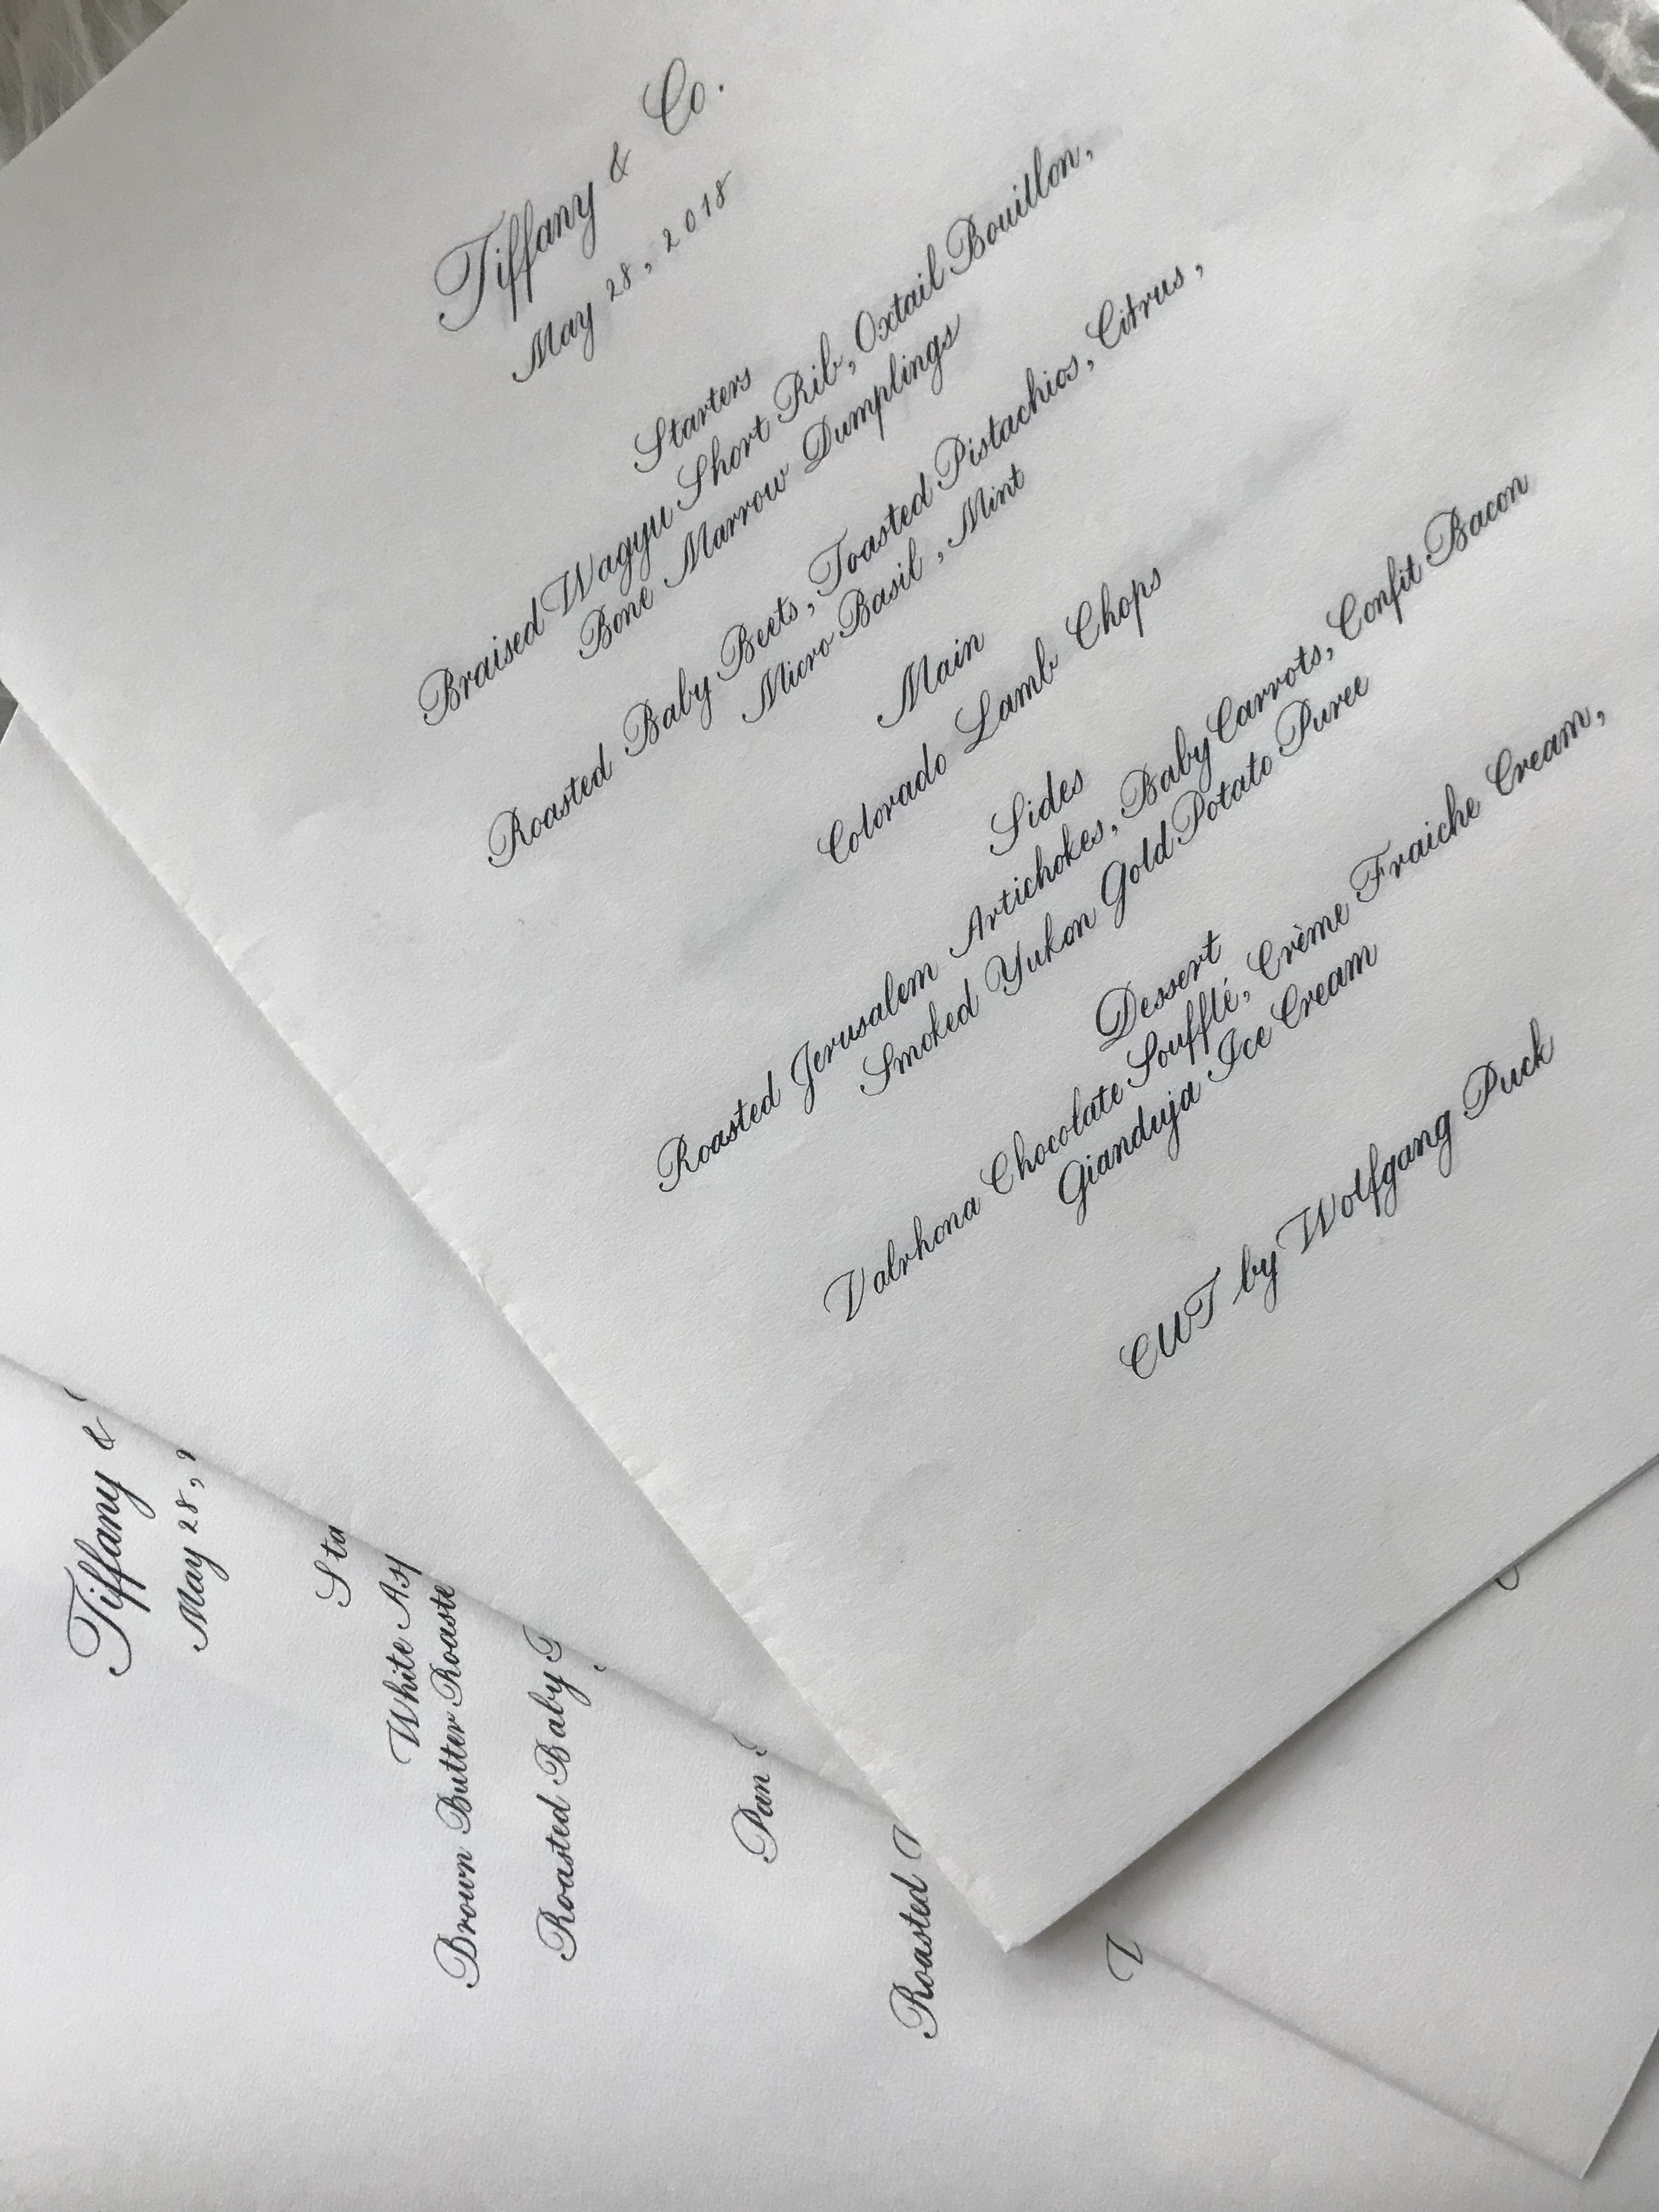 Tiffany & Co.
May 28, 2018
Starters
Braised Wagyu Short Rib, Oxtail Bouillon,
Bone Marrow Dumplings
Roasted Baby Beets, Toasted Pistachios, Citrus,
Micro Basil, Mint
Main
Colorado Lamb Chops
Sides
Roasted Jerusalem Artichokes, Baby Carrots, Confit Bacon
Smoked Yukon Gold Potato Puree
Dessert
Valrhona Chocolate Soufflé, Crème Fraiche Cream,
Gianduja Ice Cream
CUT by Wolfgang Puck
Tiffany &
May 28,
White
Brown Butter
Roasted Baby
Pan
Roasted